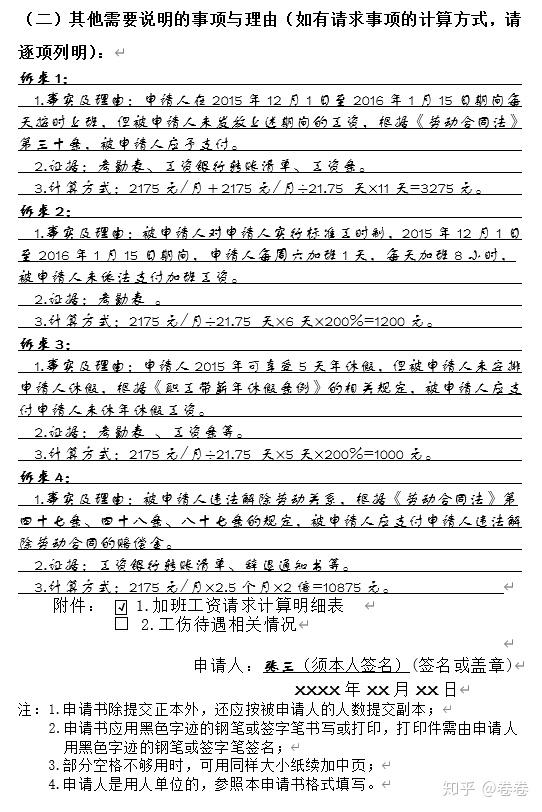 （二）其他需要说明的事项与理由（如有请求事项的计算方式，请
逐项列明）：
诉求1：
1.事实及理由：申请人在2015年12月1日至2016年1月15日期间每
天按时上班，但被申请人未发放上述期间的工资，根据《劳动合同法》
第三十条，被申请人应予支付。
2.证据：考勤表、工资银行转账清单、工资条。
3.计算方式：2175元/月＋2175元/月÷21.75 天×11天=3275元。
诉求2：
1.事实及理由：被申请人对申请人实行标准工时制，2015年12月1日
至2016年1月15日期间，申请人每周六加班1天，每天加班8小时，
被申请人未依法支付加班工资。
2.证据：考勤表 。
3.计算方式：2175元/月÷21.75 天×6天×200%=1200元。
诉求3：
1.事实及理由：申请人2015年可享受5天年休假，但被申请人未安排
申请人休假，根据《职工带薪年休假条例》的相关规定，被申请人应支
付申请人未休年休假工资。
2.证据：考勤表 、工资条等。
3.计算方式：2175元/月÷21.75 天×5天×200%=1000元。
诉求4：
1.事实及理由：被申请人违法解除劳动关系，根据《劳动合同法》第
四十七条、四十八条、八十七条的规定，被申请人应支付申请人违法解
除劳动合同的赔偿金。
2.证据：工资银行转账清单、辞退通知书等。
3.计算方式：2175元/月×2.5个月×2倍=10875元。
附件： ☑ 1.加班工资请求计算明细表
☐ 2.工伤待遇相关情况
申请人：张三（须本人签名）(签名或盖章)
XXXX年XX月XX日
注：1.申请书除提交正本外，还应按被申请人的人数提交副本；
2.申请书应用黑色字迹的钢笔或签字笔书写或打印，打印件需由申请人
用黑色字迹的钢笔或签字笔签名；
3.部分空格不够用时，可用同样大小纸续加中页；
4.申请人是用人单位的，参照本申请书格式填写。
知乎 @卷卷